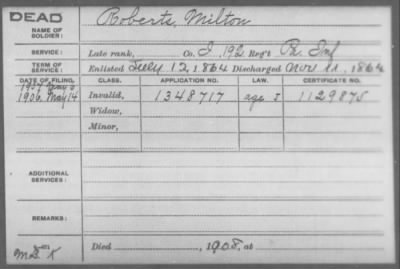 DEAD
NAME OF SOLDIER: Roberts, Milton
SERVICE: Late rank, Co. I, 192 Reg't Pa. Inf
TERM OF SERVICE: Enlisted July 12, 1864 Discharged Nov 11, 1864
DATE OF FILING. CLASS. APPLICATION NO. LAW. CERTIFICATE NO.
1907 May 6
1906 May 14 Invalid, 1348717 age 1129875
Widow,
Minor,
ADDITIONAL SERVICES:
REMARKS:
Died , 1908, at